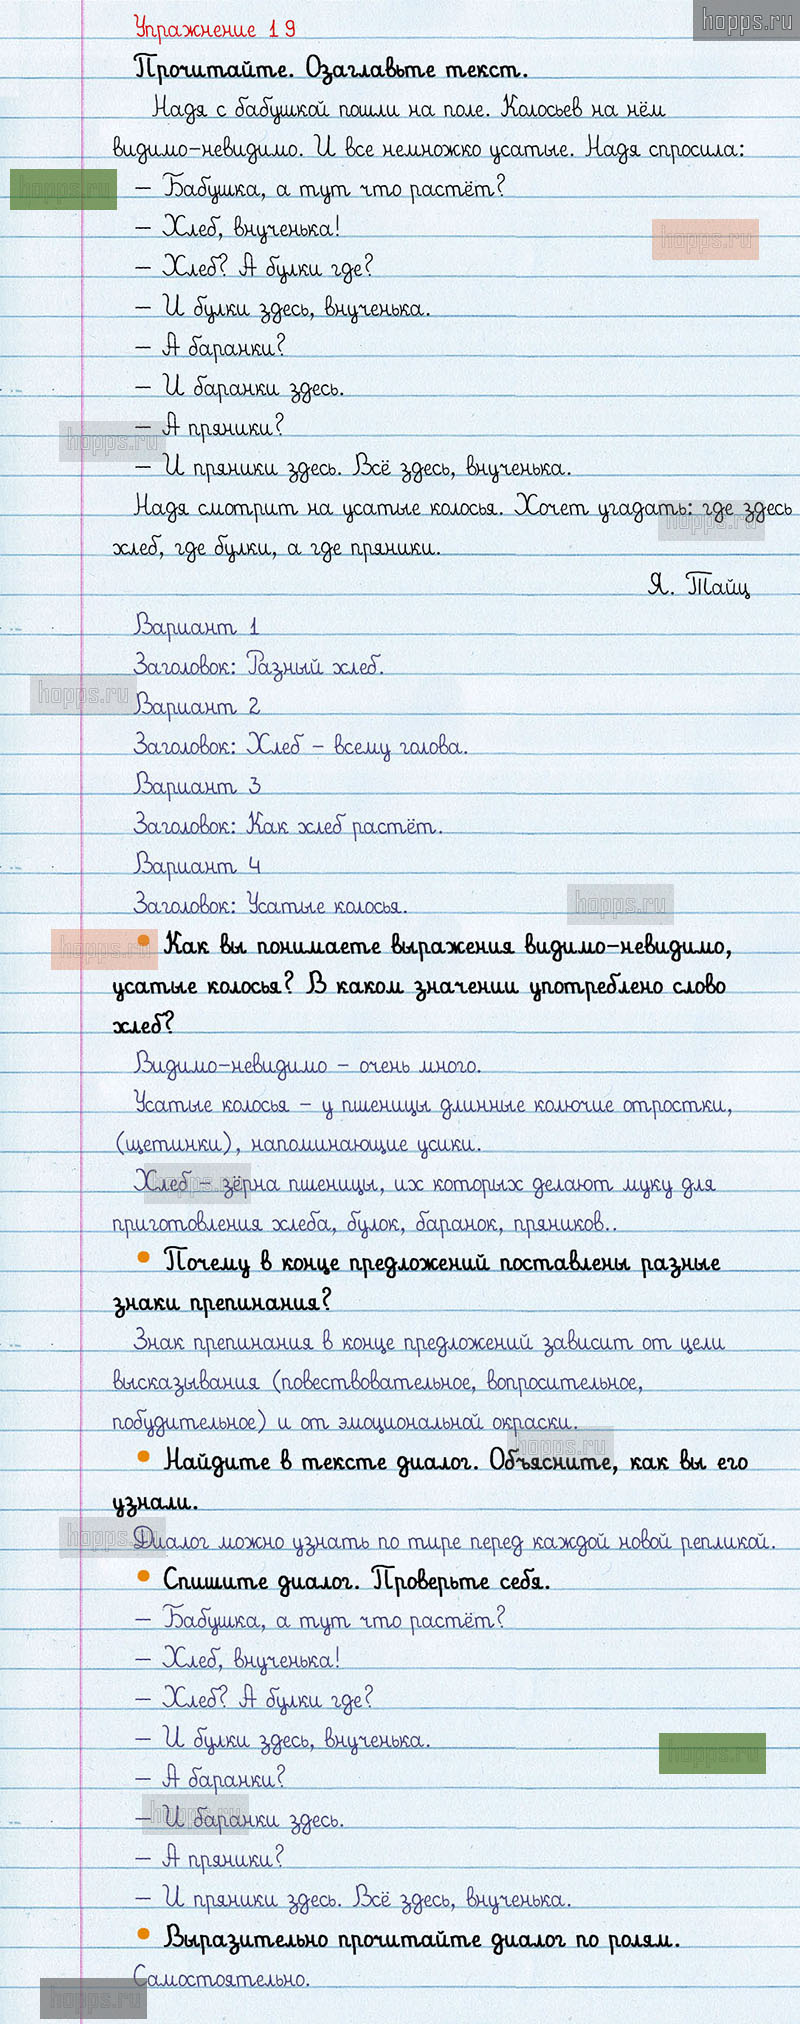 hopps.ru
Упражнение 19
Прочитайте. Озаглавьте текст.
Надя с бабушкой пошли на поле. Колосьев на нём
видимо-невидимо. И все немножко усатые. Надя спросила:
– Бабушка, а тут что растёт?
hopps.ru
– Хлеб, внученька!
hopps.ru
– Хлеб? А булки где?
– И булки здесь, внученька.
– А баранки?
– И баранки здесь.
– А пряники?
hopps.ru
– И пряники здесь. Всё здесь, внученька.
Надя смотрит на усатые колосья. Хочет угадать: где здесь
hopps.ru
хлеб, где булки, а где пряники.
Я. Тайц
Вариант 1
Заголовок: Разный хлеб.
hopps.ru
Вариант 2
Заголовок: Хлеб – всему голова.
Вариант 3
Заголовок: Как хлеб растёт.
Вариант 4
Заголовок: Усатые колосья.
hopps.ru
• Как вы понимаете выражения видимо-невидимо,
hopps.ru
усатые колосья? В каком значении употреблено слово
хлеб?
Видимо-невидимо – очень много.
Усатые колосья – у пшеницы длинные колючие отростки,
(щетинки), напоминающие усики.
Хлеб – зёрна пшеницы, их которых делают муку для
hopps.ru
приготовления хлеба, булок, баранок, пряников..
• Почему в конце предложений поставлены разные
знаки препинания?
Знак препинания в конце предложений зависит от цели
высказывания (повествовательное, вопросительное,
побудительное) и от эмоциональной окраски.
hopps.ru
• Найдите в тексте диалог. Объясните, как вы его
узнали.
Диалог можно узнать по тире перед каждой новой репликой.
hopps.ru
• Спишите диалог. Проверьте себя.
– Бабушка, а тут что растёт?
– Хлеб, внученька!
– Хлеб? А булки где?
– И булки здесь, внученька.
hopps.ru
– А баранки?
– И баранки здесь.
hopps.ru
– А пряники?
– И пряники здесь. Всё здесь, внученька.
• Выразительно прочитайте диалог по ролям.
Самостоятельно.
hopps.ru